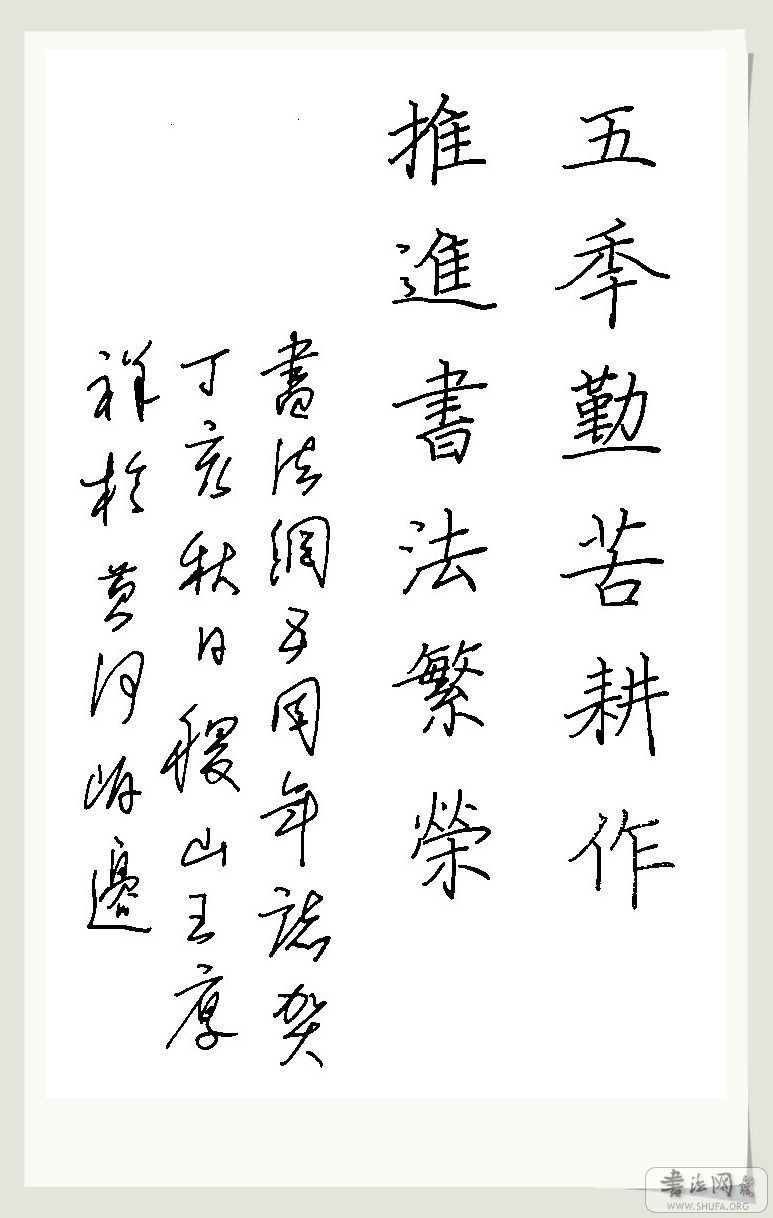 五季勤苦耕作
推進書法繁榮
書法網五周年誌賀
丁亥秋日稷山王厚
祥於黄河岸邊
书法网
WWW.SHUFA.ORG